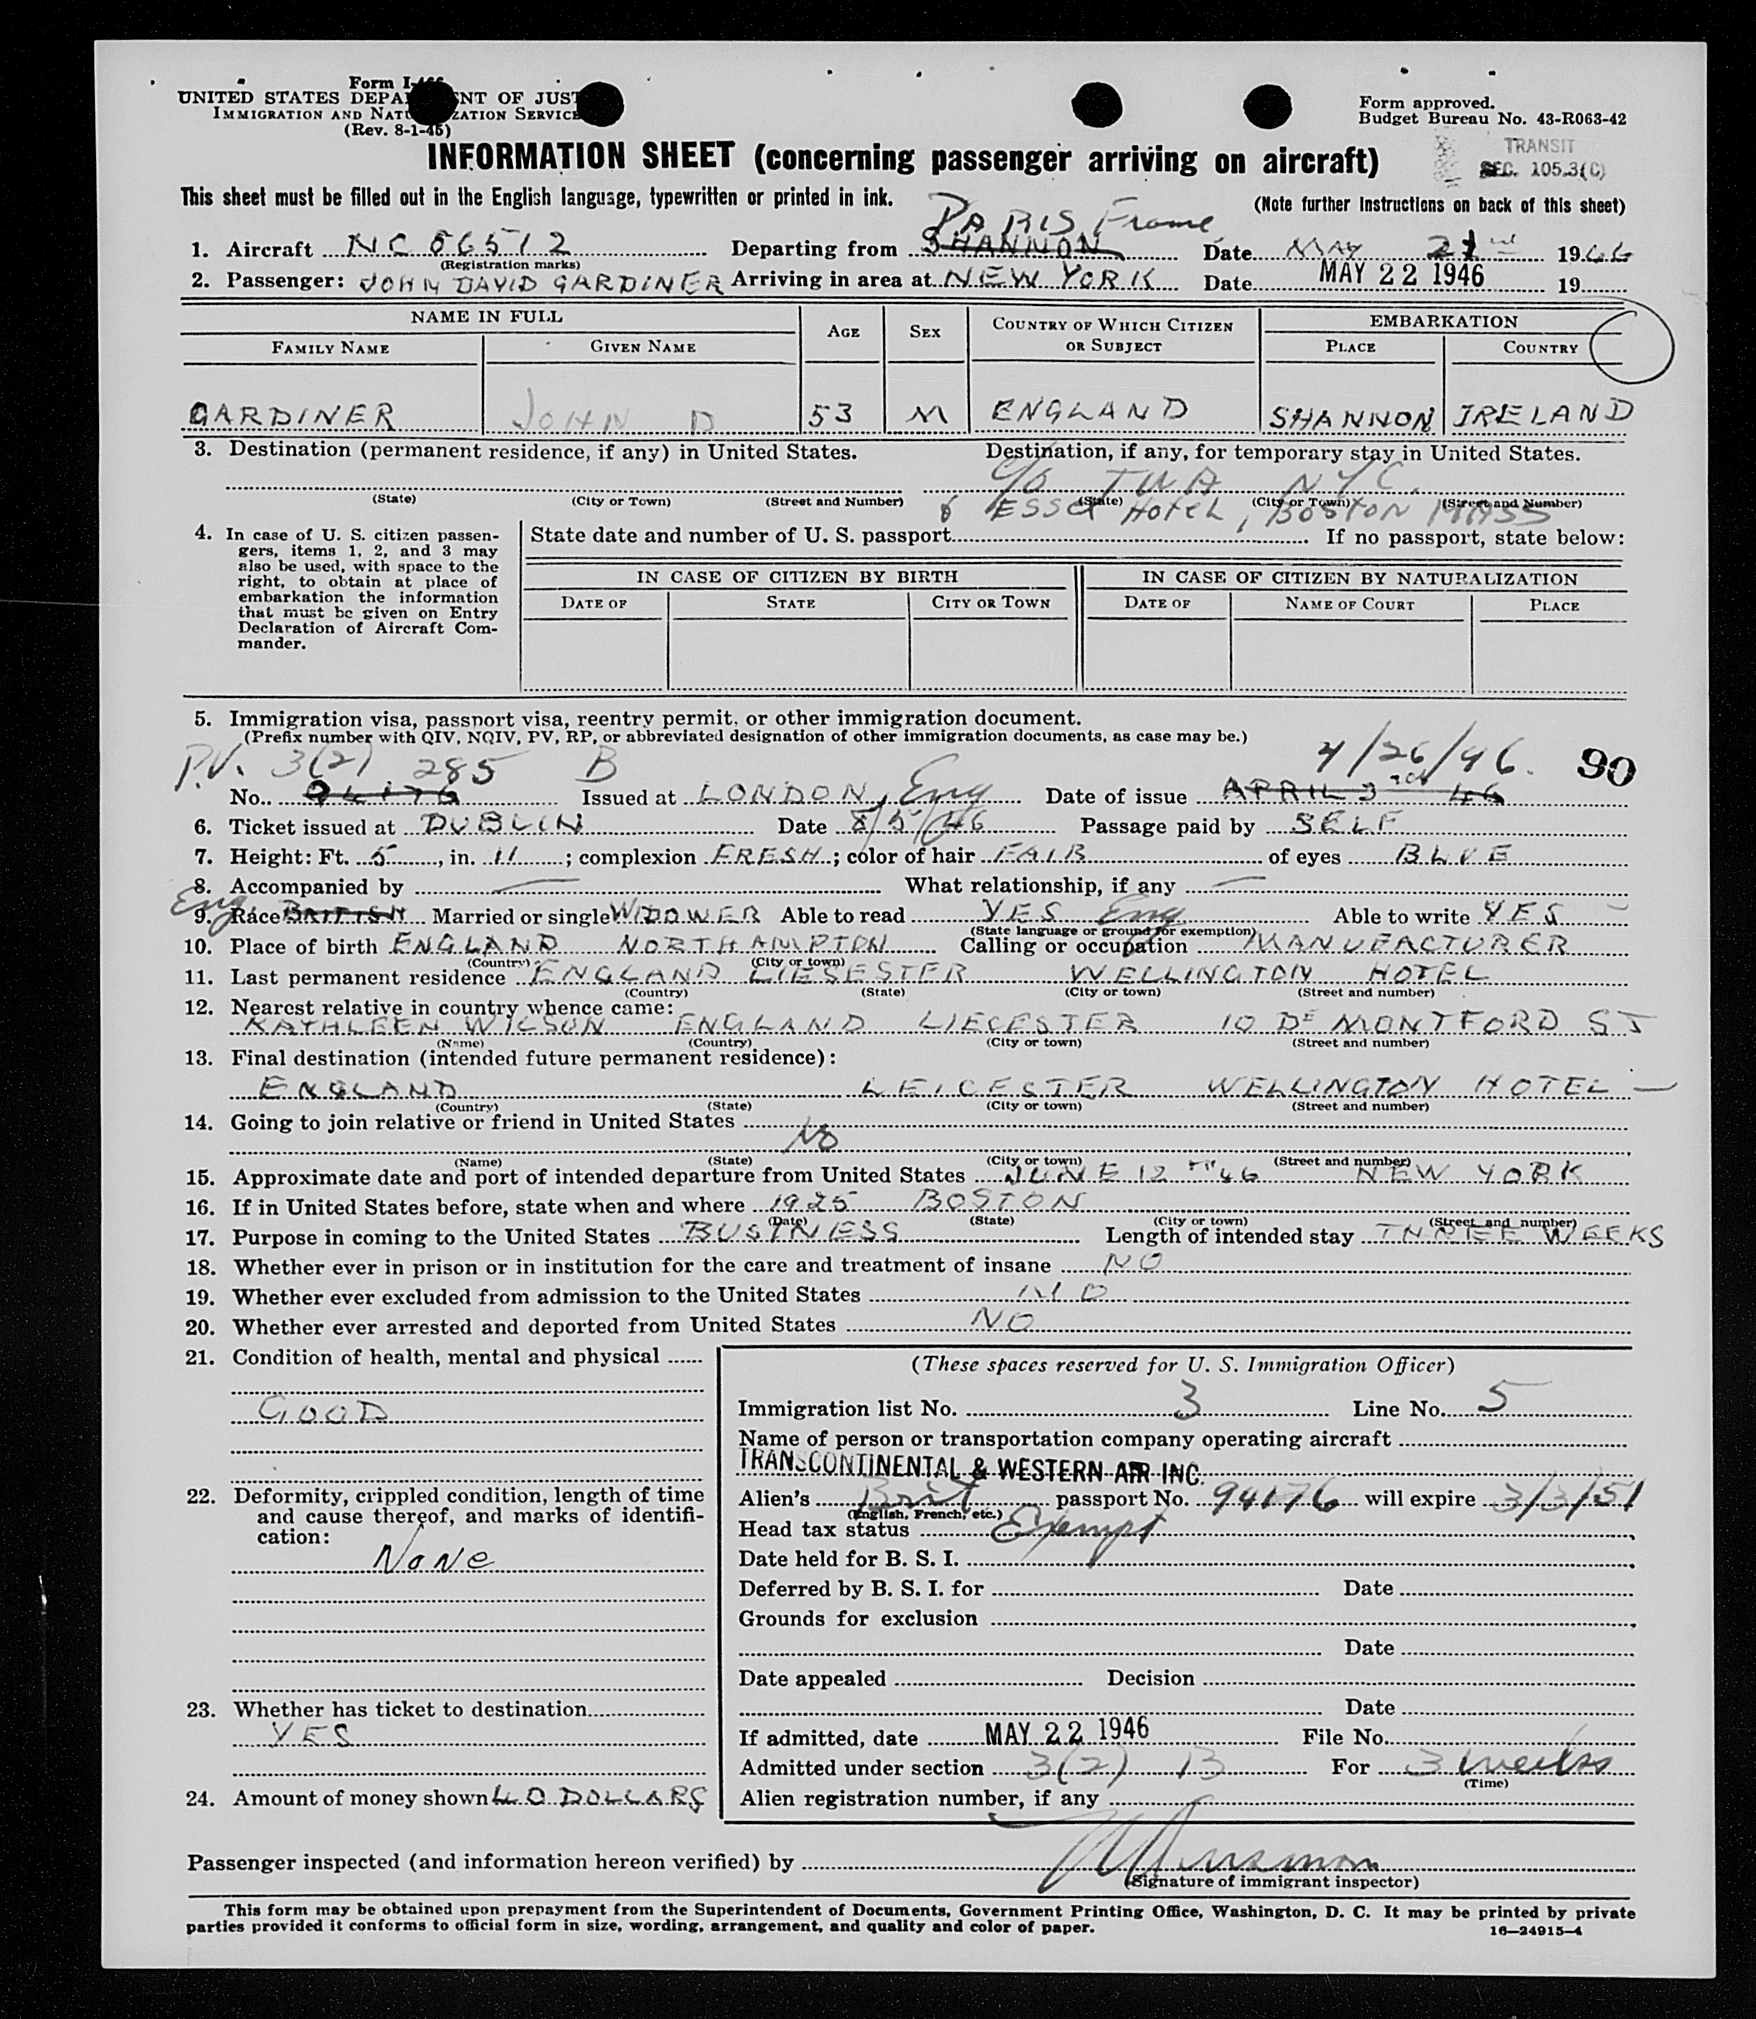 Form I-466
UNITED STATES DEPARTMENT OF JUSTICE
IMMIGRATION AND NATURALIZATION SERVICE
(Rev. 8-1-45)
Form approved.
Budget Bureau No. 43-R063-42
TRANSIT
SEC. 105.3(C)
INFORMATION SHEET (concerning passenger arriving on aircraft)
This sheet must be filled out in the English language, typewritten or printed in ink.
(Note further instructions on back of this sheet)
PARIS France
1. Aircraft NC 86512 Departing from SHANNON Date MAY 21 1946
(Registration marks)
2. Passenger: JOHN DAVID GARDINER Arriving in area at NEW YORK Date MAY 22 1946 19
NAME IN FULL AGE SEX COUNTRY OF WHICH CITIZEN OR SUBJECT EMBARKATION
FAMILY NAME GIVEN NAME PLACE COUNTRY
GARDINER JOHN D 53 M ENGLAND SHANNON IRELAND
3. Destination (permanent residence, if any) in United States. Destination, if any, for temporary stay in United States.
C/o TWA NYC.
(State) (City or Town) (Street and Number) (State) (City or Town) (Street and Number)
ESSEX HOTEL, BOSTON MASS
4. In case of U. S. citizen passengers, items 1, 2, and 3 may also be used, with space to the right, to obtain at place of embarkation the information that must be given on Entry Declaration of Aircraft Commander.
State date and number of U. S. passport If no passport, state below:
IN CASE OF CITIZEN BY BIRTH IN CASE OF CITIZEN BY NATURALIZATION
DATE OF STATE CITY OR TOWN DATE OF NAME OF COURT PLACE
5. Immigration visa, passport visa, reentry permit, or other immigration document.
(Prefix number with QIV, NQIV, PV, RP, or abbreviated designation of other immigration documents, as case may be.)
P.V. 3(2) 285 B 4/26/46. 90
No. 94176 Issued at LONDON, Eng Date of issue APRIL 3RD 46
6. Ticket issued at DUBLIN Date 8/5/46 Passage paid by SELF
7. Height: Ft. 5, in. 11; complexion FRESH; color of hair FAIR of eyes BLUE
8. Accompanied by — What relationship, if any —
Eng
9. Race BRITISH Married or single WIDOWER Able to read YES Eng Able to write YES
(State language or ground for exemption)
10. Place of birth ENGLAND NORTHAMPTON Calling or occupation MANUFACTURER
(Country) (City or town)
11. Last permanent residence ENGLAND LIESESTER WELLINGTON HOTEL
(Country) (State) (City or town) (Street and number)
12. Nearest relative in country whence came:
KATHLEEN WILSON ENGLAND LIECESTER 10 DE MONTFORD ST
(Name) (Country) (City or town) (Street and number)
13. Final destination (intended future permanent residence):
ENGLAND LEICESTER WELLINGTON HOTEL —
(Country) (State) (City or town) (Street and number)
14. Going to join relative or friend in United States
NO
(Name) (State) (City or town) (Street and number)
15. Approximate date and port of intended departure from United States JUNE 12TH 46 NEW YORK
16. If in United States before, state when and where 1925 BOSTON
(Date) (State) (City or town) (Street and number)
17. Purpose in coming to the United States BUSINESS Length of intended stay THREE WEEKS
18. Whether ever in prison or in institution for the care and treatment of insane NO
19. Whether ever excluded from admission to the United States NO
20. Whether ever arrested and deported from United States NO
21. Condition of health, mental and physical
GOOD
22. Deformity, crippled condition, length of time and cause thereof, and marks of identification:
None
23. Whether has ticket to destination
YES
24. Amount of money shown 40 DOLLARS
(These spaces reserved for U. S. Immigration Officer)
Immigration list No. 3 Line No. 5
Name of person or transportation company operating aircraft
TRANSCONTINENTAL & WESTERN AIR INC.
Alien's Brit passport No. 94176 will expire 3/3/51
(English, French, etc.)
Head tax status Exempt
Date held for B. S. I.
Deferred by B. S. I. for Date
Grounds for exclusion
Date
Date appealed Decision
Date
If admitted, date MAY 22 1946 File No.
Admitted under section 3(2) B For 3 weeks
(Time)
Alien registration number, if any
Passenger inspected (and information hereon verified) by
(Signature of immigrant inspector)
This form may be obtained upon prepayment from the Superintendent of Documents, Government Printing Office, Washington, D. C. It may be printed by private
parties provided it conforms to official form in size, wording, arrangement, and quality and color of paper.
16—24915-4